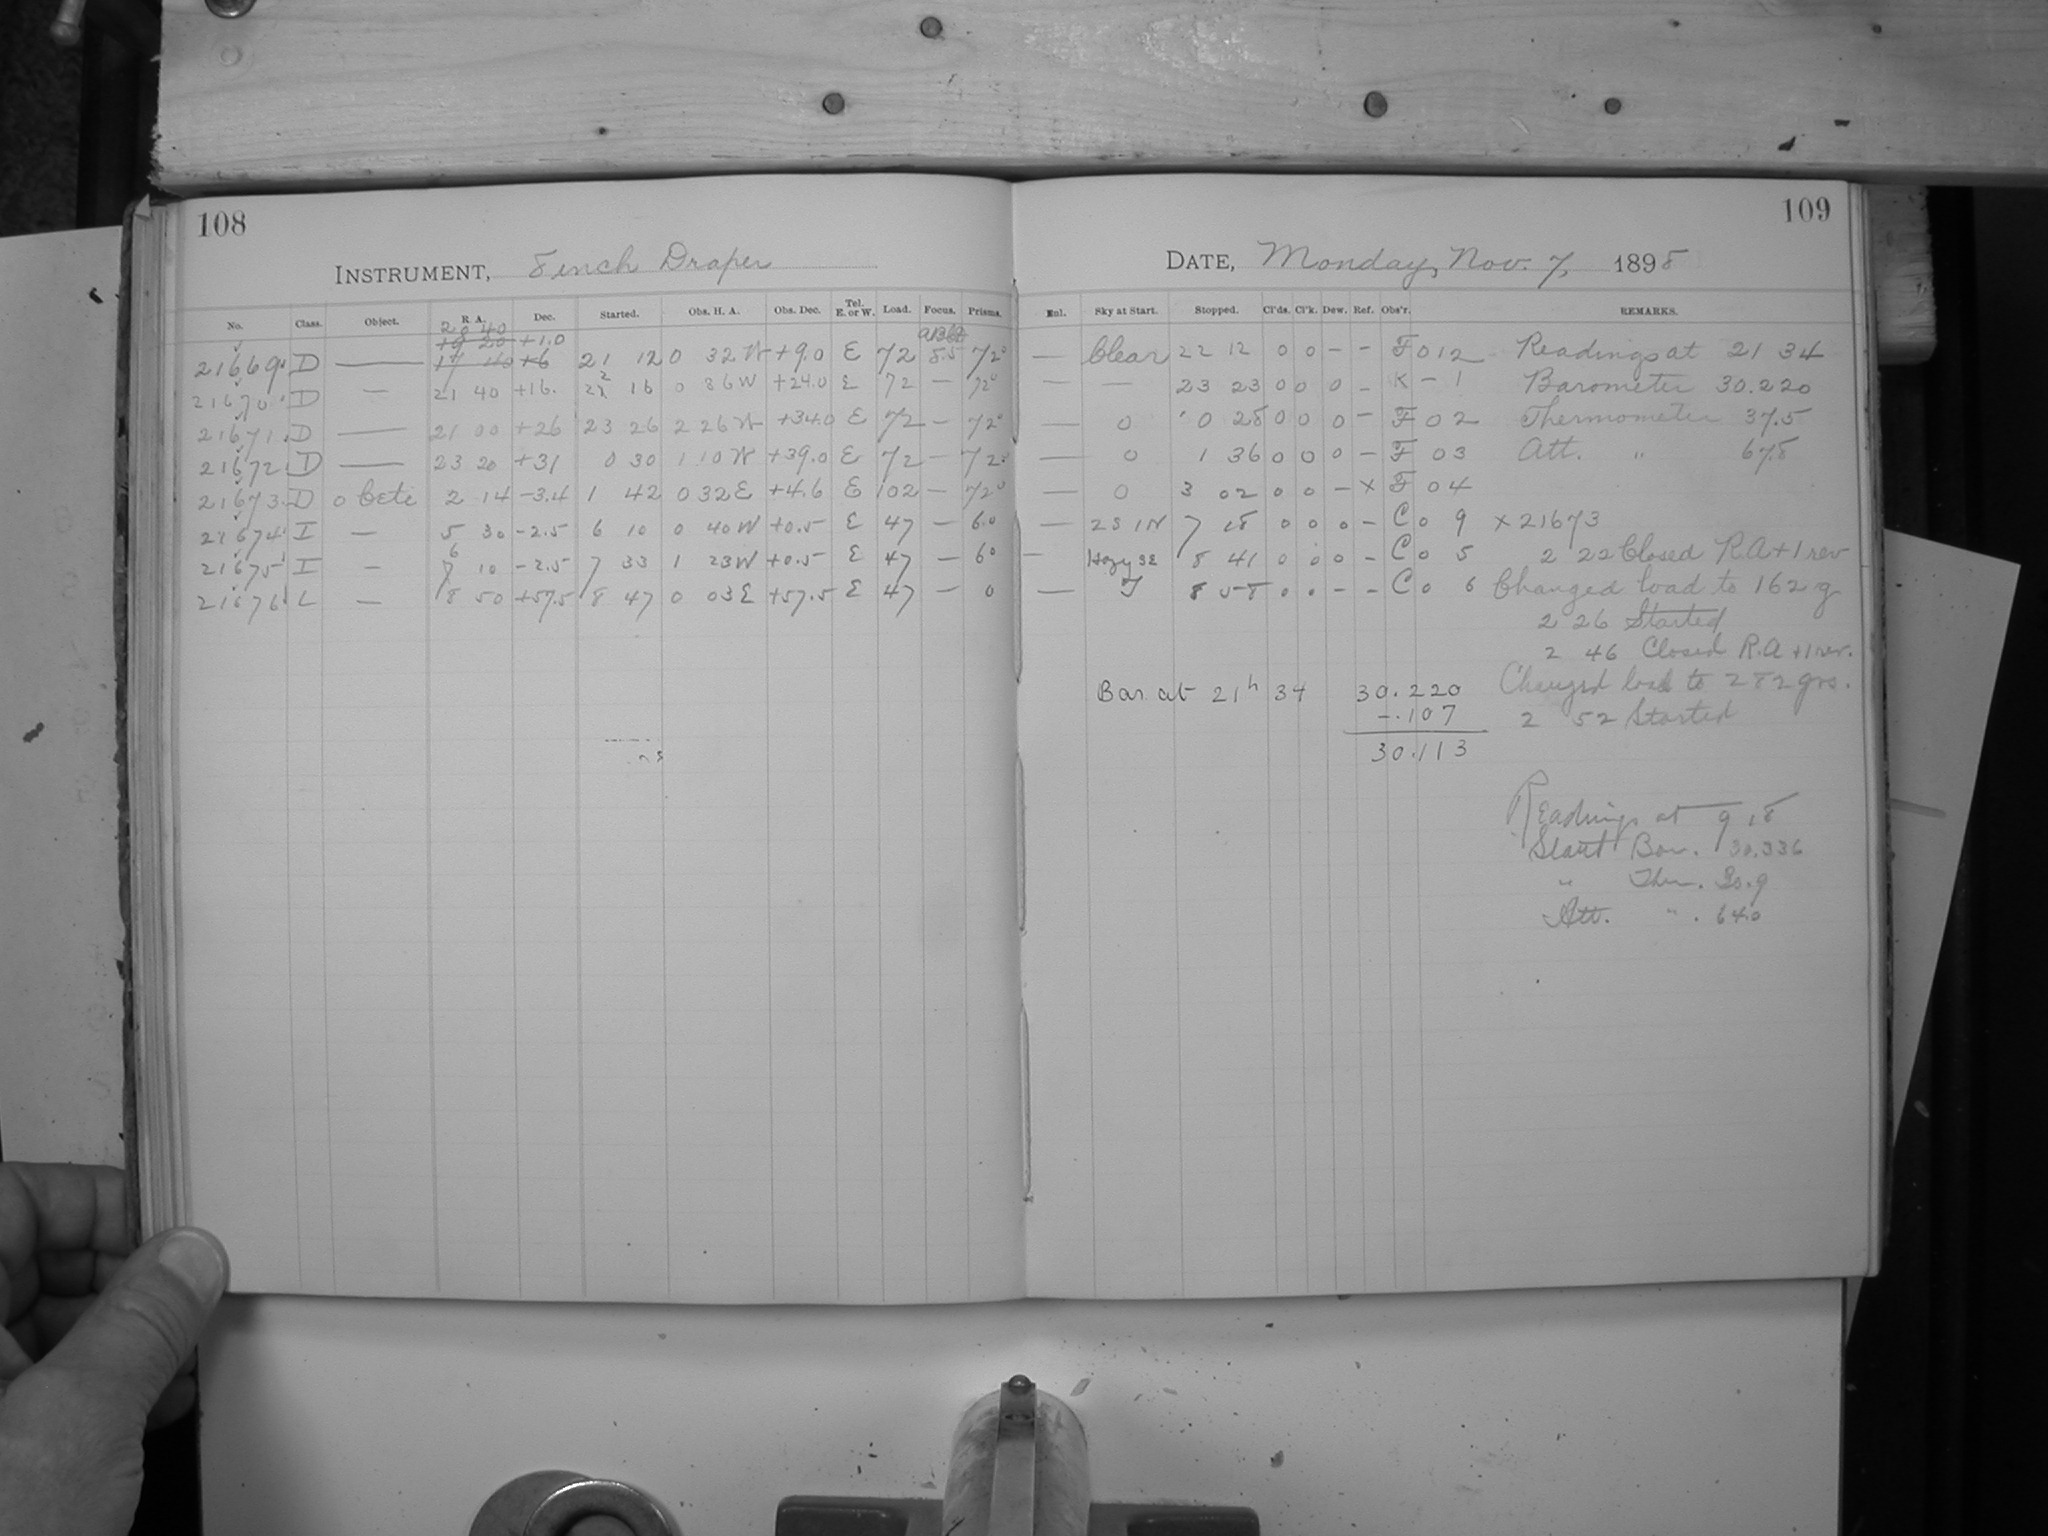 108
INSTRUMENT, 8 inch Draper
No. Class. Object. R. A. Dec. Started. Obs. H. A. Obs. Dec. Tel. E. or W. Load. Focus. Prisms.
20 40
19 20 +1.0
21669 D — 17 40 +6 21 12 0 32 W +9.0 E 72 8.5 72°
21670 D — 21 40 +16. 22 16 0 36 W +24.0 E 72 — 72°
21671 D — 21 00 +26 23 26 2 26 W +34.0 E 72 — 72°
21672 D — 23 20 +31 0 30 1 10 W +39.0 E 72 — 72°
21673 D o Ceti 2 14 -3.4 1 42 0 32 E +4.6 E 102 — 72°
21674 I — 5 30 -2.5 6 10 0 40 W +0.5 E 47 — 6°
21675 I — 6 7 10 -2.5 7 33 1 23 W +0.5 E 47 — 6°
21676 L — 8 50 +57.5 8 47 0 03 E +57.5 E 47 — 0
109
DATE, Monday, Nov. 7, 1898
Enl. Sky at Start. Stopped. Cl'ds. Cl'k. Dew. Ref. Obs'r. REMARKS.
— Clear 22 12 0 0 – – F 0 12 Readings at 21 34
— — 23 23 0 0 0 – K – 1 Barometer 30.220
— 0 0 28 0 0 0 – F 0 2 Thermometer 37.5
— 0 1 36 0 0 0 – F 0 3 Att. " 67.8
— 0 3 02 0 0 – x F 0 4
— 2S 1N 7 18 0 0 0 – C 0 9 x 21673
— Hazy SE 8 41 0 0 0 – C 0 5 2 22 Closed R.A +1 rev
— 8 58 0 0 – – C 0 6 Changed load to 162 g
2 26 Started
2 46 Closed R.A +1 rev.
Changed load to 282 grs.
2 52 Started
Bar. at 21h 34 30.220
-.107
30.113
Readings at 9 18
Start Bar. 30.336
" Ther.
Att. " . 64.0